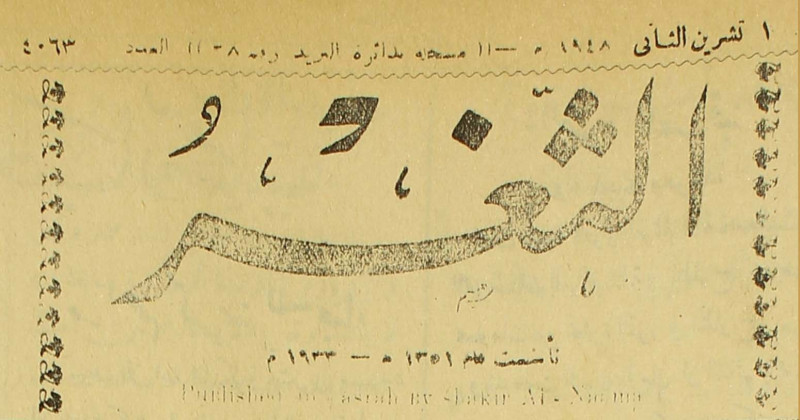 ١ تشرين الثانى ١٩٤٨ م — (( مسجله بدائرة البريد رقم ٨ )) العدد ٤٠٦٣
الثغر
تأسست عام ١٣٥١ ه — ١٩٣٣ م
Published in Basrah by Shakir Al-